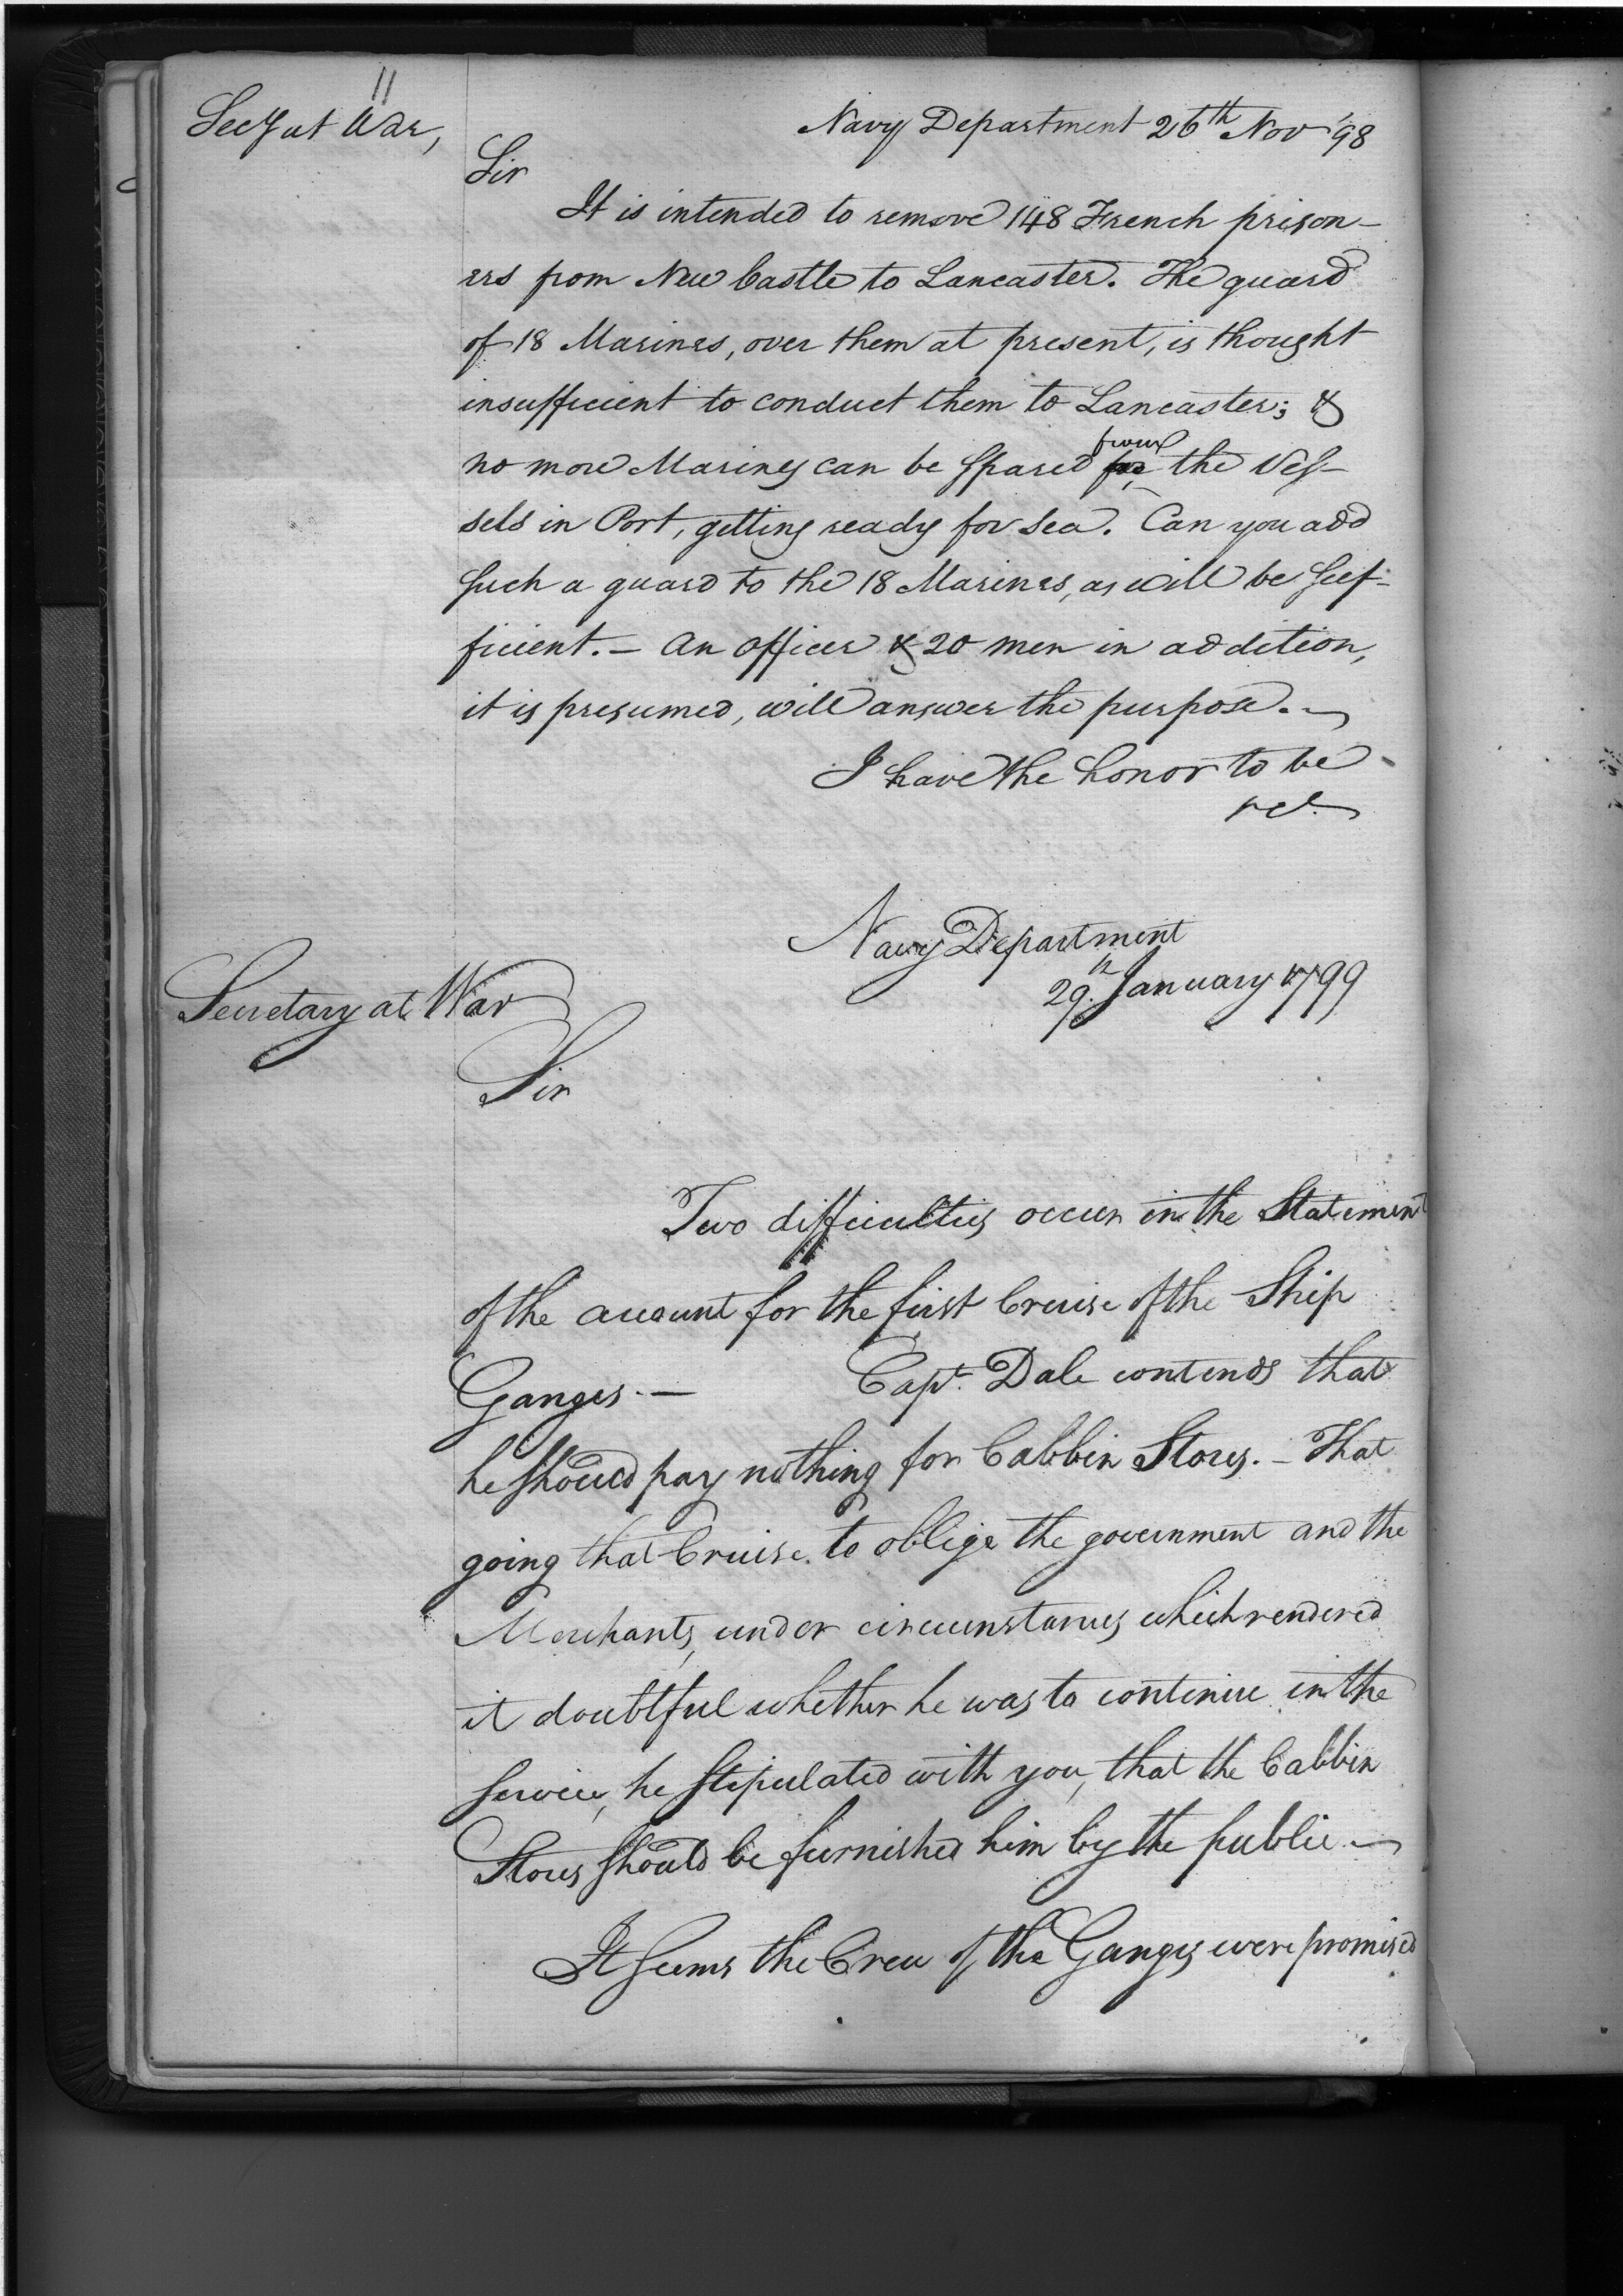 11
Secy at War,
Navy Department 26th Nov '98
Sir
It is intended to remove 148 French prison-
ers from New Castle to Lancaster. The guard
of 18 Marines, over them at present, is thought
insufficient to conduct them to Lancaster; &
no more Marines can be spared from the Ves-
sels in Port, getting ready for Sea. Can you add
such a guard to the 18 Marines, as will be suf-
ficient. - An officer & 20 men in addition,
it is presumed, will answer the purpose.
I have the honor to be
Navy Department
29th January 1799
Secretary at War
Sir
Two difficulties occur in the Statement
of the account for the first Cruise of the Ship
Ganges. — Capt. Dale contends that
he should pay nothing for Cabbin Stores. - That
going that Cruise to oblige the government and the
Merchants, under circumstances which rendered
it doubtful whether he was to continue in the
service, he stipulated with you, that the Cabbin
Stores should be furnished him by the public
It seems the Crew of the Ganges were promised